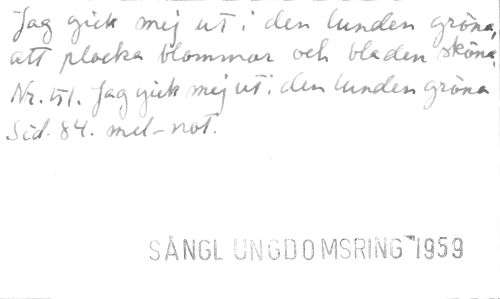 Jag gick mej ut i den lunden gröna,
att plocka blommor och bladen sköna.
Nr. 51. Jag gick mej ut i den lunden gröna
Sid. 84. mel-not.
SÅNGL UNGDOMSRING 1959